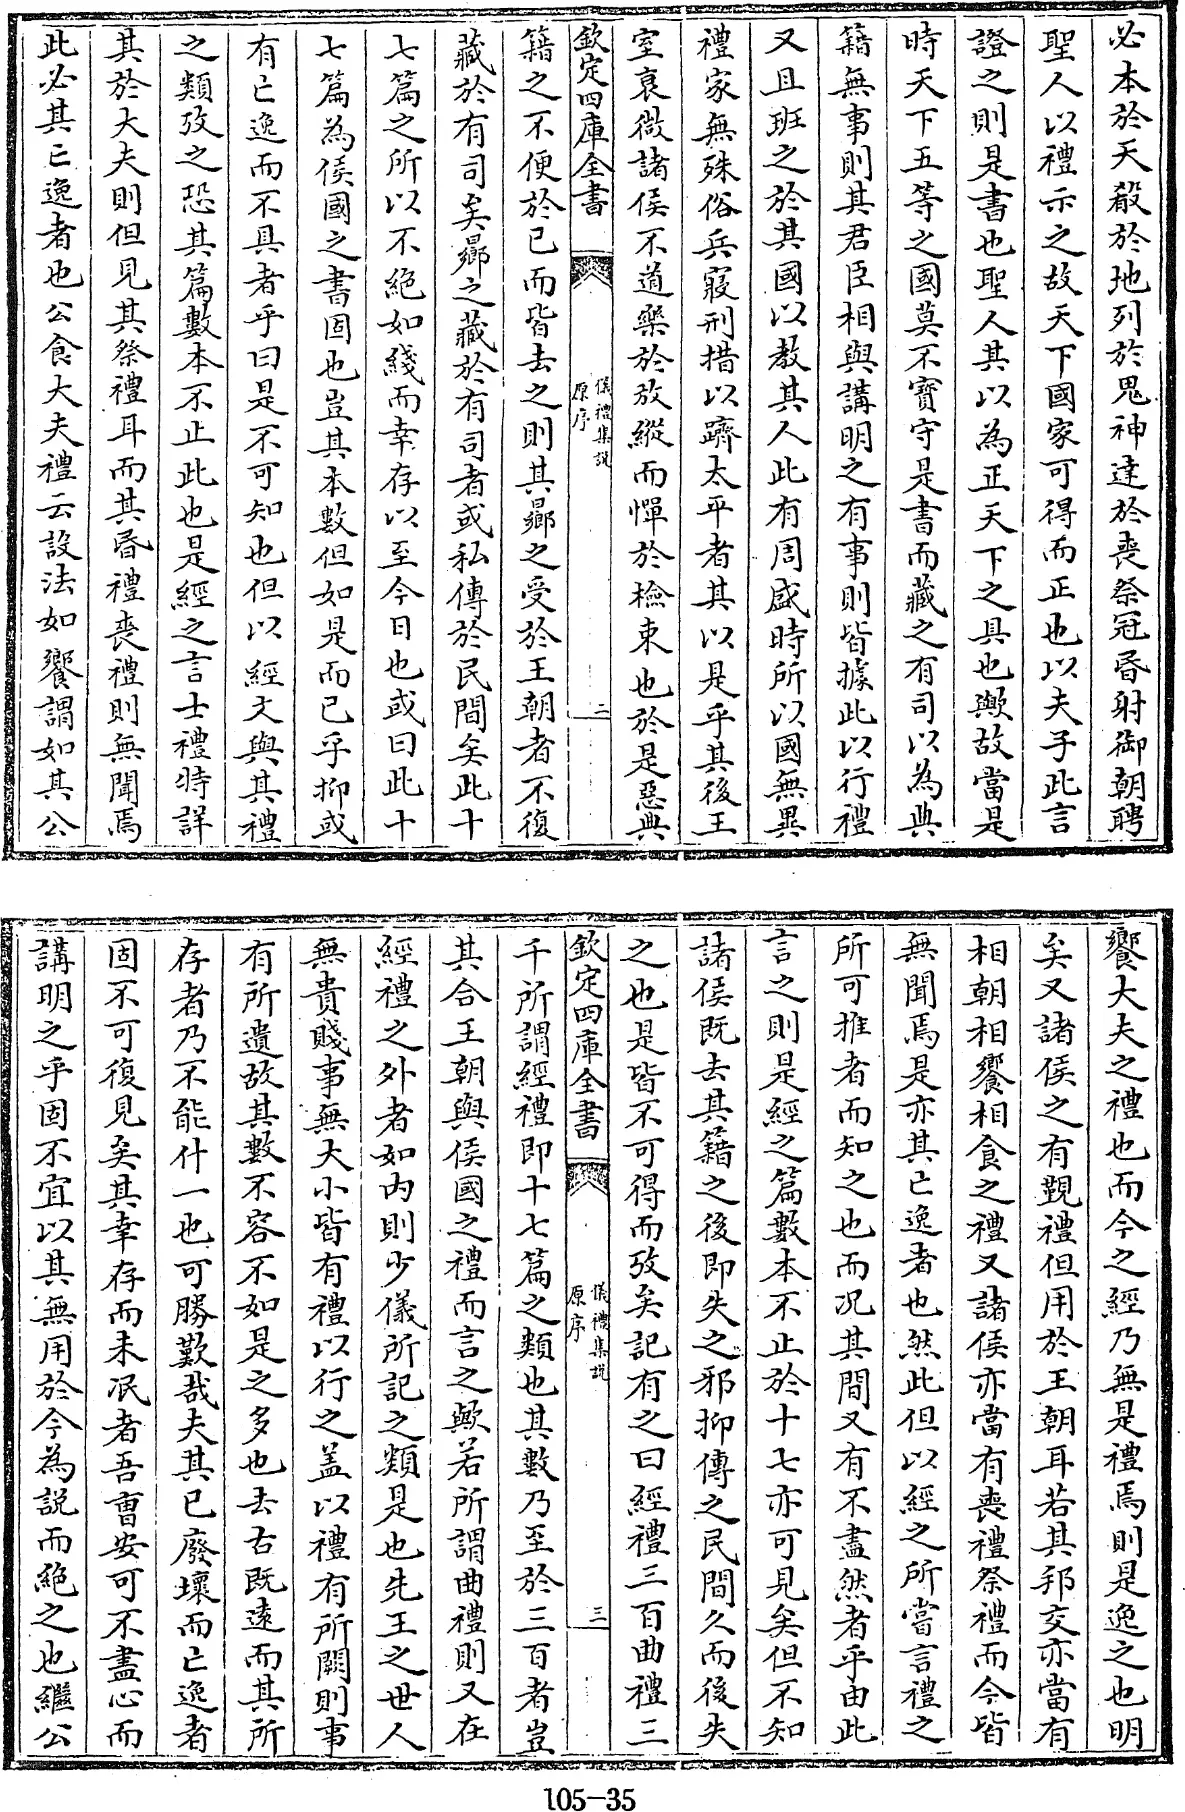 必本於天殽於地列於鬼神達於喪祭冠昏射御朝聘
聖人以禮示之故天下國家可得而正也以夫子此言
證之則是書也聖人其以為正天下之具也歟故當是
時天下五等之國莫不寳守是書而藏之有司以為典
籍無事則其君臣相與講明之有事則皆據此以行禮
又且班之於其國以教其人此有周盛時所以國無異
禮家無殊俗兵寢刑措以躋太平者其以是乎其後王
室衰微諸侯不道樂於放縱而憚於檢束也於是惡典
欽定四庫全書
儀禮集說
原序
二
籍之不便於已而皆去之則其曏之受於王朝者不復
藏於有司矣曏之藏於有司者或私傳於民間矣此十
七篇之所以不絕如綫而幸存以至今日也或曰此十
七篇為侯國之書固也豈其本數但如是而已乎抑或
有亡逸而不具者乎曰是不可知也但以經文與其禮
之類攷之恐其篇數本不止此也是經之言士禮特詳
其於大夫則但見其祭禮耳而其昏禮喪禮則無聞焉
此必其亡逸者也公食大夫禮云設法如饗謂如其公
饗大夫之禮也而今之經乃無是禮焉則是逸之也明
矣又諸侯之有覲禮但用於王朝耳若其邦交亦當有
相朝相饗相食之禮又諸侯亦當有喪禮祭禮而今皆
無聞焉是亦其亡逸者也然此但以經之所嘗言禮之
所可推者而知之也而況其間又有不盡然者乎由此
言之則是經之篇數本不止於十七亦可見矣但不知
諸侯既去其籍之後即失之邪抑傳之民間久而後失
之也是皆不可得而攷矣記有之曰經禮三百曲禮三
欽定四庫全書
儀禮集說
原序
三
千所謂經禮即十七篇之類也其數乃至於三百者豈
其合王朝與侯國之禮而言之歟若所謂曲禮則又在
經禮之外者如內則少儀所記之類是也先王之世人
無貴賤事無大小皆有禮以行之蓋以禮有所闕則事
有所遺故其數不容不如是之多也去古既遠而其所
存者乃不能什一也可勝歎哉夫其已廢壞而亡逸者
固不可復見矣其幸存而未泯者吾曹安可不盡心而
講明之乎固不宜以其無用於今為說而絕之也繼公
105-35